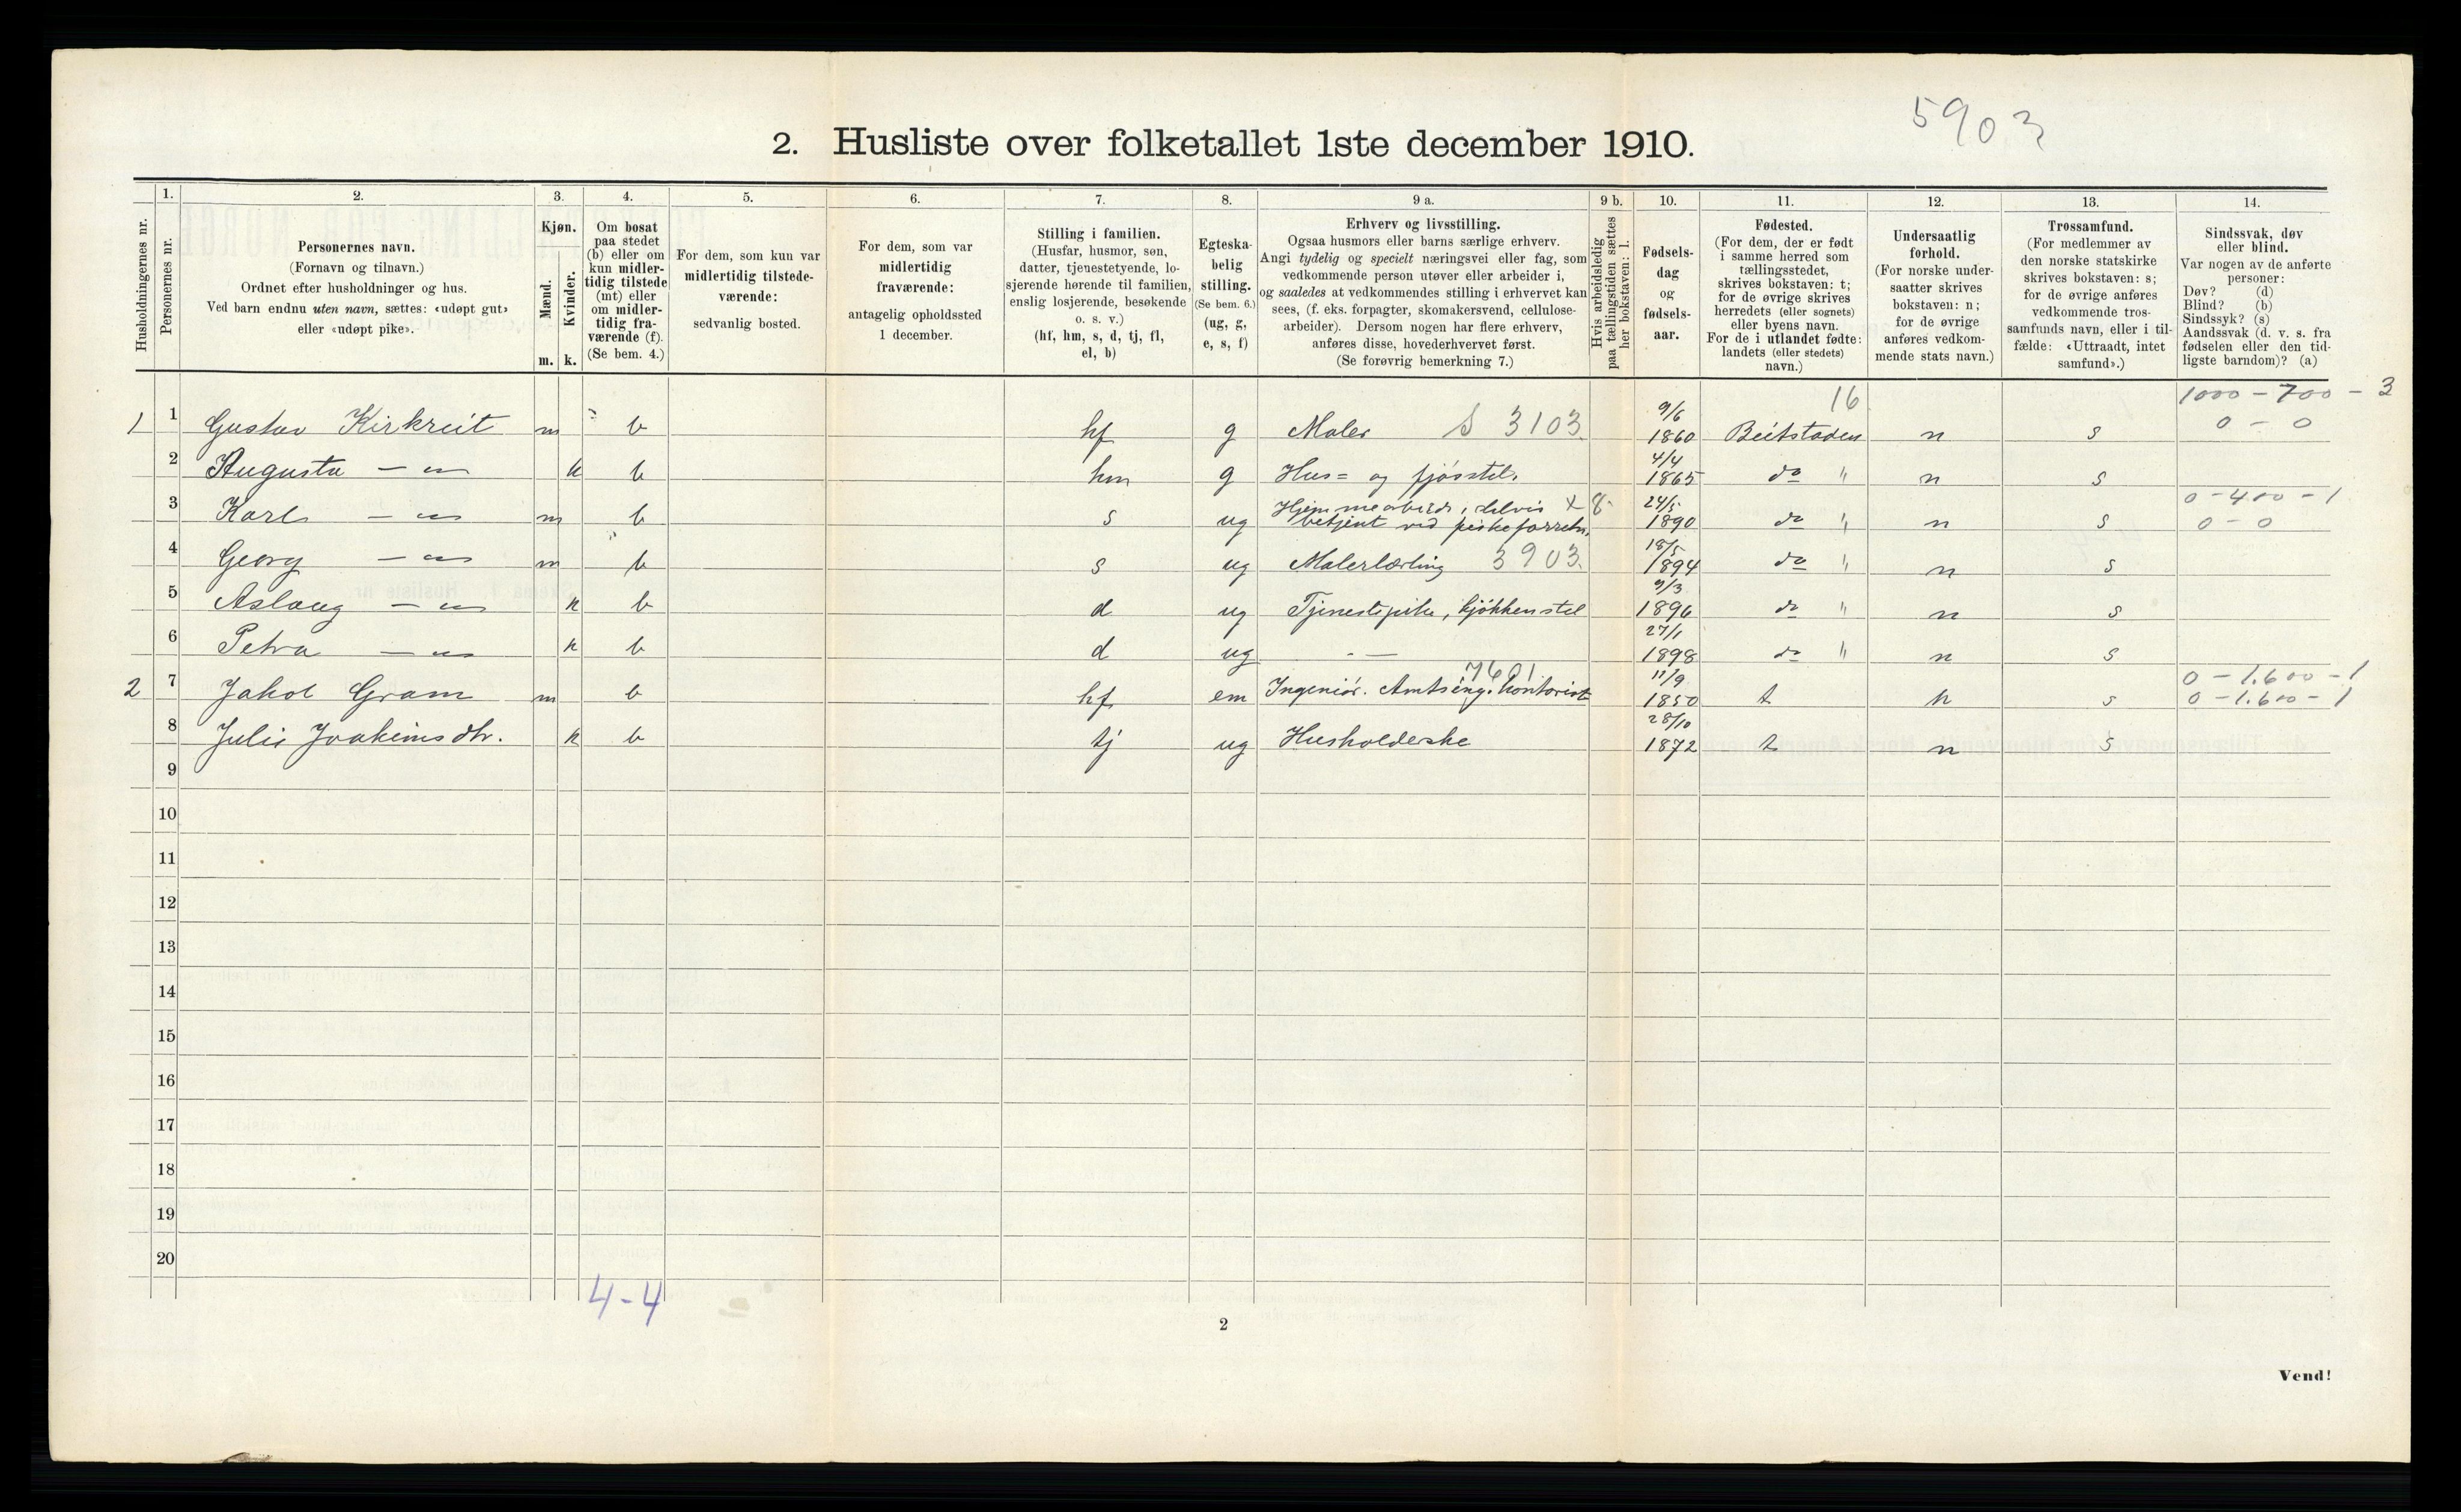 5903
2. Husliste over folketallet 1ste december 1910.
Husholdningernes nr.
1.
Personernes nr.
2.
Personernes navn.
(Fornavn og tilnavn.)
Ordnet efter husholdninger og hus.
Ved barn endnu uten navn, sættes: «udøpt gut»
eller «udøpt pike».
3.
Kjøn.
Mænd.
Kvinder.
m. k.
4.
Om bosat
paa stedet
(b) eller om
kun midler-
tidig tilstede
(mt) eller
om midler-
tidig fra-
værende (f).
(Se bem. 4.)
5.
For dem, som kun var
midlertidig tilstede-
værende:
sedvanlig bosted.
6.
For dem, som var
midlertidig
fraværende:
antagelig opholdssted
1 december.
7.
Stilling i familien.
(Husfar, husmor, søn,
datter, tjenestetyende, lo-
sjerende hørende til familien,
enslig losjerende, besøkende
o. s. v.)
(hf, hm, s, d, tj, fl,
el, b)
8.
Egteska-
belig
stilling.
(Se bem. 6.)
(ug, g,
e, s, f)
9 a.
Erhverv og livsstilling.
Ogsaa husmors eller barns særlige erhverv.
Angi tydelig og specielt næringsvei eller fag, som
vedkommende person utøver eller arbeider i,
og saaledes at vedkommendes stilling i erhvervet kan
sees, (f. eks. forpagter, skomakersvend, cellulose-
arbeider). Dersom nogen har flere erhverv,
anføres disse, hovederhvervet først.
(Se forøvrig bemerkning 7.)
9 b.
Hvis arbeidsledig
paa tællingstiden sættes
her bokstaven: l.
10.
Fødsels-
dag
og
fødsels-
aar.
11.
Fødested.
(For dem, der er født
i samme herred som
tællingsstedet,
skrives bokstaven: t;
for de øvrige skrives
herredets (eller sognets)
eller byens navn.
For de i utlandet fødte:
landets (eller stedets)
navn.)
12.
Undersaatlig
forhold.
(For norske under-
saatter skrives
bokstaven: n;
for de øvrige
anføres vedkom-
mende stats navn.)
13.
Trossamfund.
(For medlemmer av
den norske statskirke
skrives bokstaven: s;
for de øvrige anføres
vedkommende tros-
samfunds navn, eller i til-
fælde: «Uttraadt, intet
samfund».)
14.
Sindssvak, døv
eller blind.
Var nogen av de anførte
personer:
Døv? (d)
Blind? (b)
Sindssyk? (s)
Aandssvak (d. v. s. fra
fødselen eller den tid-
ligste barndom)? (a)
16 1000 - 700 - 3
1 1 Gustav Kirkreit m b hf g Maler S 3103 9/6 1860 Beitstaden n s 0 - 0
2 Augusta — " — k b hm g Hus= og fjøsstel. 4/4 1865 do " n s
3 Karl — " — m b s ug Hjemmearbeide, delvis x 8 24/5 1890 do " n s 0 - 400 - 1
betjent ved fiskeforretn. 0 - 0
4 Georg — " — m b s ug Malerlærling 3903 18/5 1894 do " n s
5 Aslaug — " — k b d ug Tjenestepike, kjøkkenstel 9/3 1896 do " n s
6 Petra — " — k b d ug - — 27/1 1898 do " n s
7601 0 - 1.600 - 1
2 7 Jakob Gram m b hf em Ingeniør. Amtsing. kontorist 11/9 1850 t n s 0 - 1.600 - 1
8 Julie Joakimsdtr. k b tj ug Husholderske 28/10 1872 t n s
9
10
11
12
13
14
15
16
17
18
19
20
4-4
2
Vend!